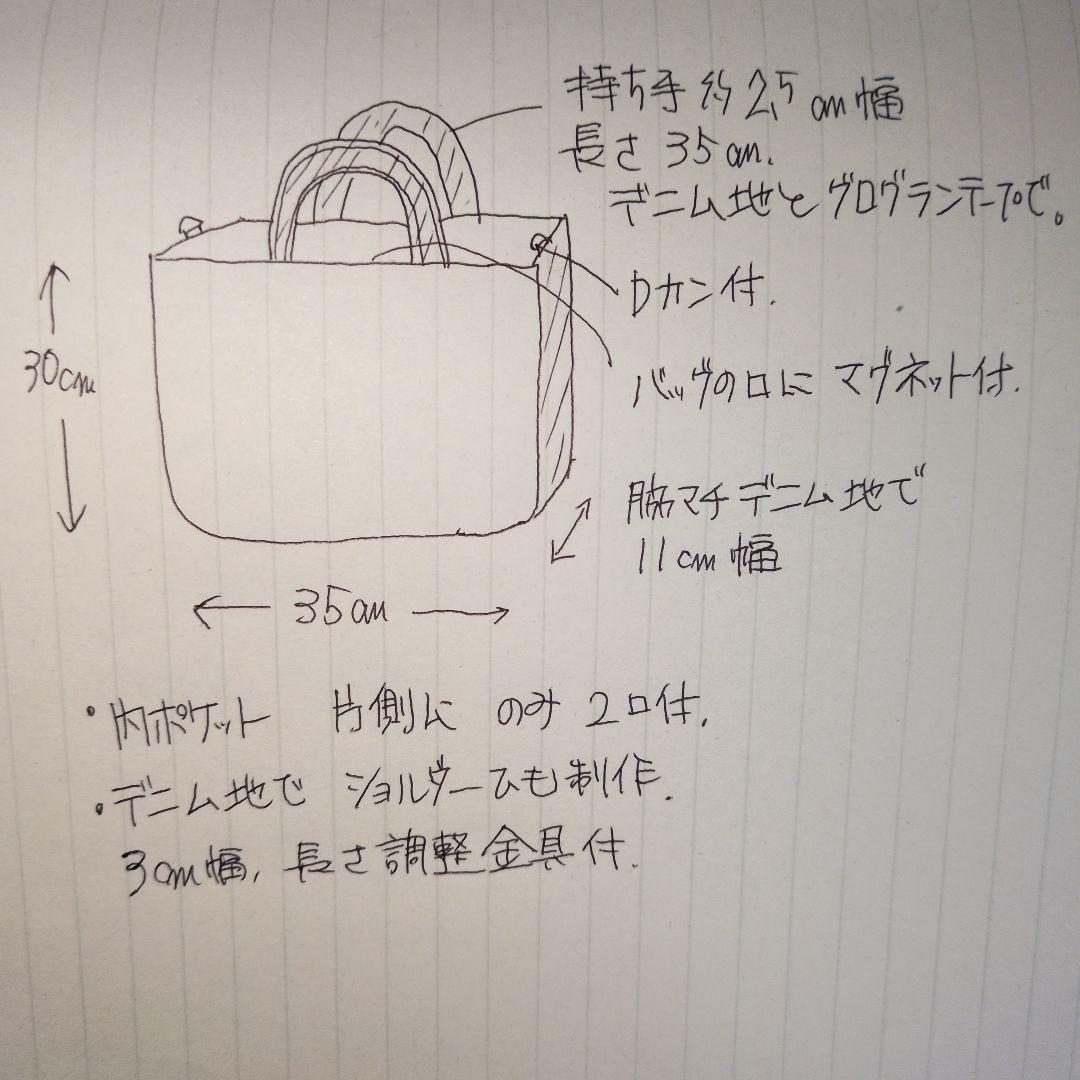 持ち手 約2.5cm幅
長さ 35cm.
デニム地とグログランテープで。
Dカン付.
30cm
バッグの口に マグネット付.
脇マチデニム地で
11cm幅
35cm
・内ポケット 片側に のみ 2口付.
・デニム地で ショルダーひも制作.
3cm幅, 長さ調整金具付.